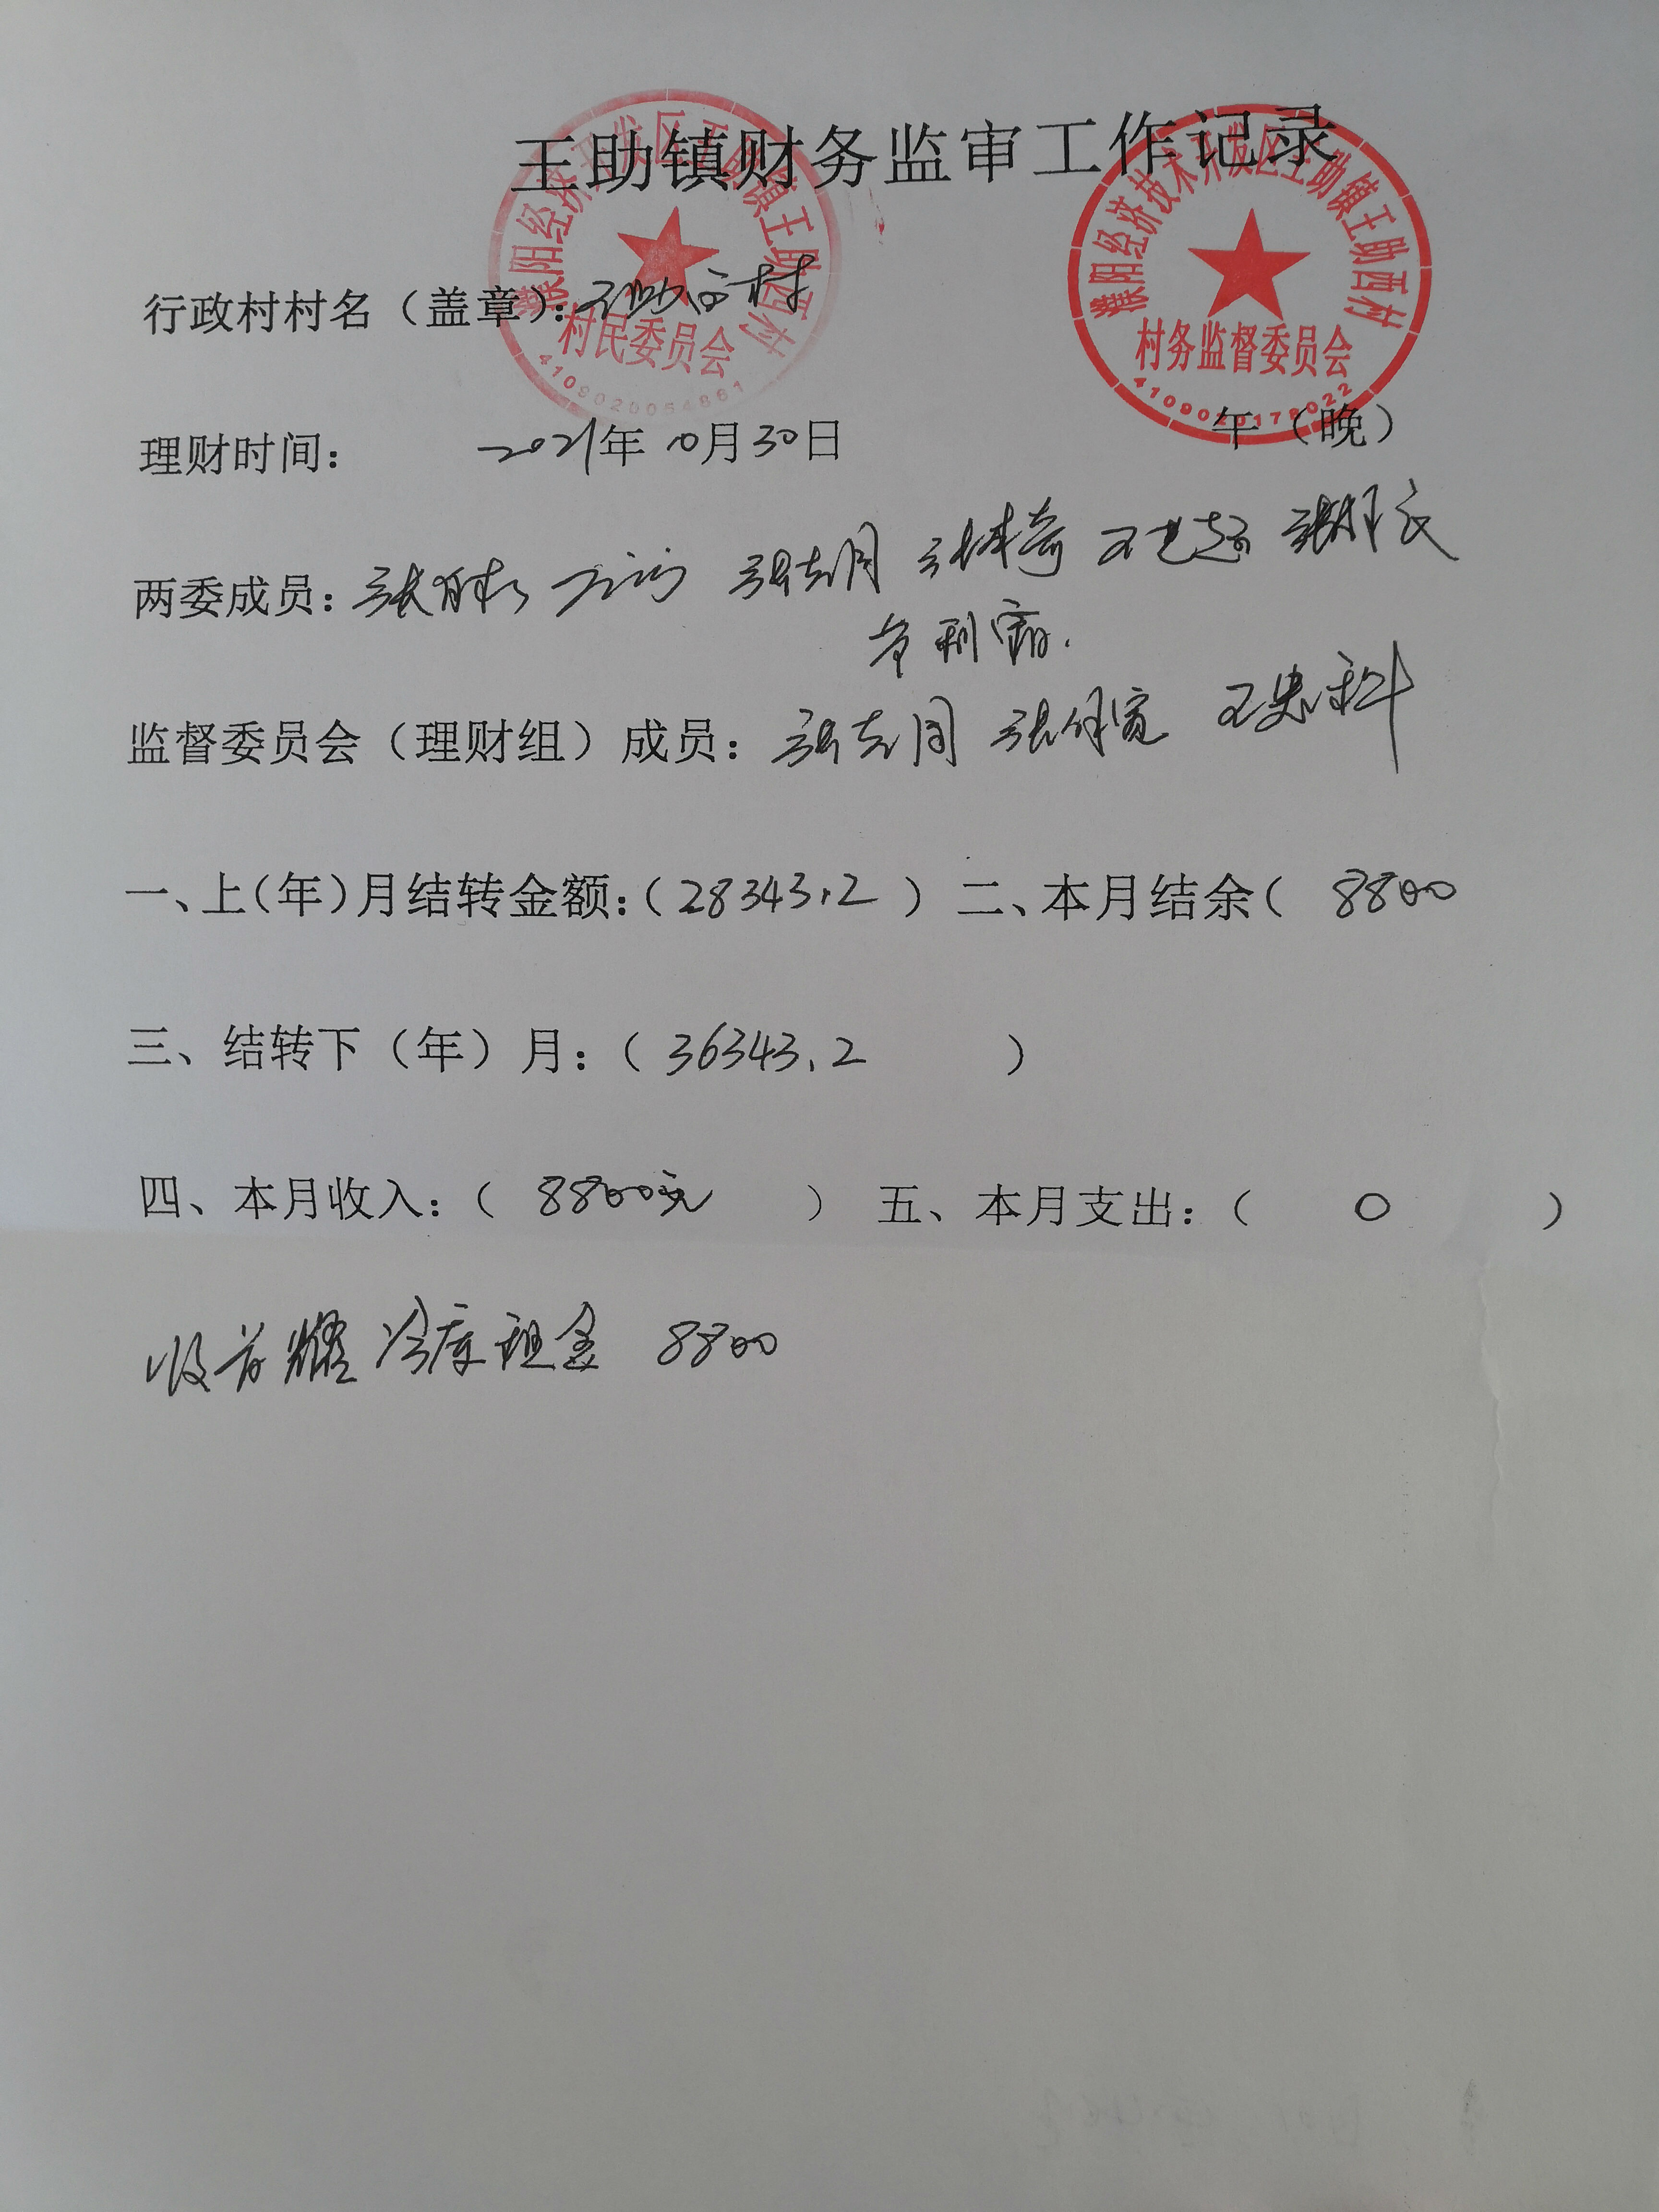 王助镇财务监审工作记录
濮阳经济技术开发区王助镇王助西村
村民委员会
4109020054861
濮阳经济技术开发区王助镇王助西村
村务监督委员会
4109020178022
行政村村名（盖章）：王助西村
理财时间： 2021年10月30日 午（晚）
两委成员：
监督委员会（理财组）成员：
一、上（年）月结转金额：（28343.2） 二、本月结余（ 8800
三、结转下（年）月：（36343.2 ）
四、本月收入：（ 8800元 ） 五、本月支出：（ 0 ）
收 冷库租金 8800